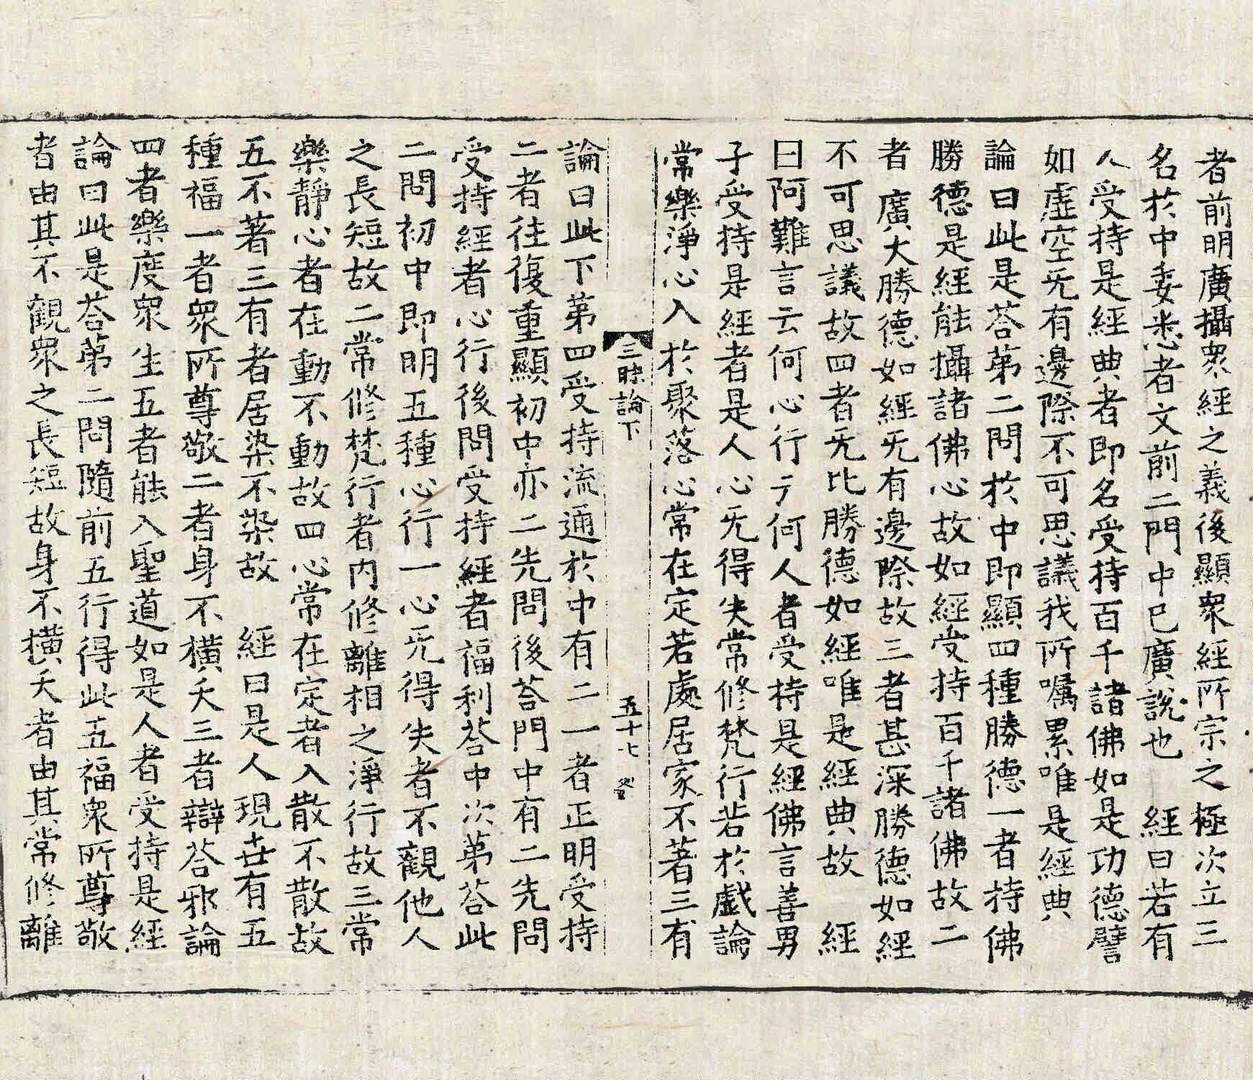 者前明廣攝衆經之義後顯衆經所宗之極次立三
名於中委悉者文前二門中已廣說也　經曰若有
人受持是經典者即名受持百千諸佛如是功德譬
如虛空无有邊際不可思議我所囑累唯是經典
論曰此是荅第二問於中即顯四種勝德一者持佛
勝德是經能攝諸佛心故如經受持百千諸佛故二
者廣大勝德如經无有邊際故三者甚深勝德如經
不可思議故四者无比勝德如經唯是經典故　經
曰阿難言云何心行云何人者受持是經佛言善男
子受持是經者是人心无得失常修梵行若於戱論
常樂淨心入於聚落心常在定若處居家不著三有
三昧論下　五十七
論曰此下第四受持流通於中有二一者正明受持
二者往復重顯初中亦二先問後荅問中有二先問
受持經者心行後問受持經者福利荅中次第荅此
二問初中即明五種心行一心无得失者不觀他人
之長短故二常修梵行者内修離相之淨行故三常
樂靜心者在動不動故四心常在定者入散不散故
五不著三有者居染不染故　經曰是人現世有五
種福一者衆所尊敬二者身不橫夭三者辯荅邪論
四者樂度衆生五者能入聖道如是人者受持是經
論曰此是荅第二問隨前五行得此五福衆所尊敬
者由其不觀衆之長短故身不橫夭者由其常修離